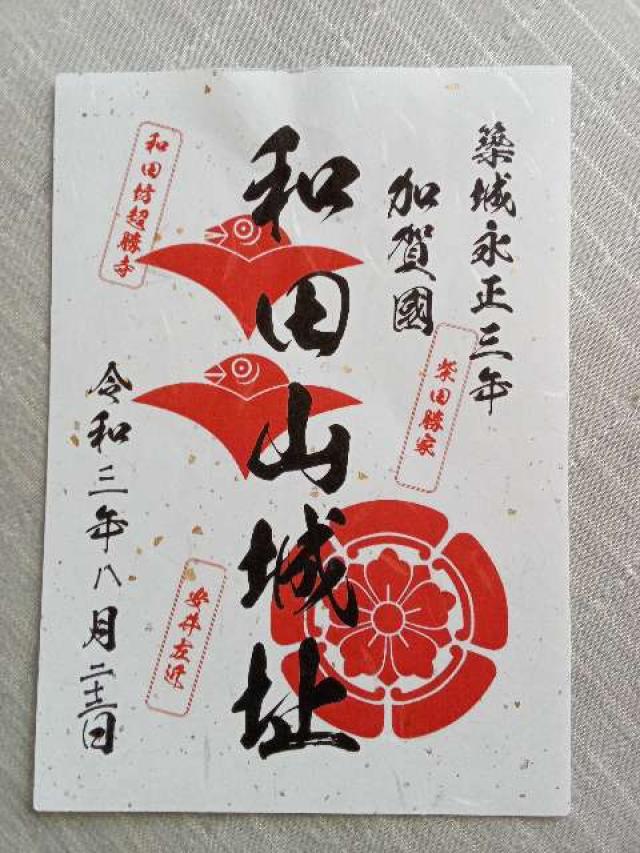 築城永正三年
加賀國
柴田勝家
和田山城址
和田坊超勝寺
安井左近
令和三年八月二十二日